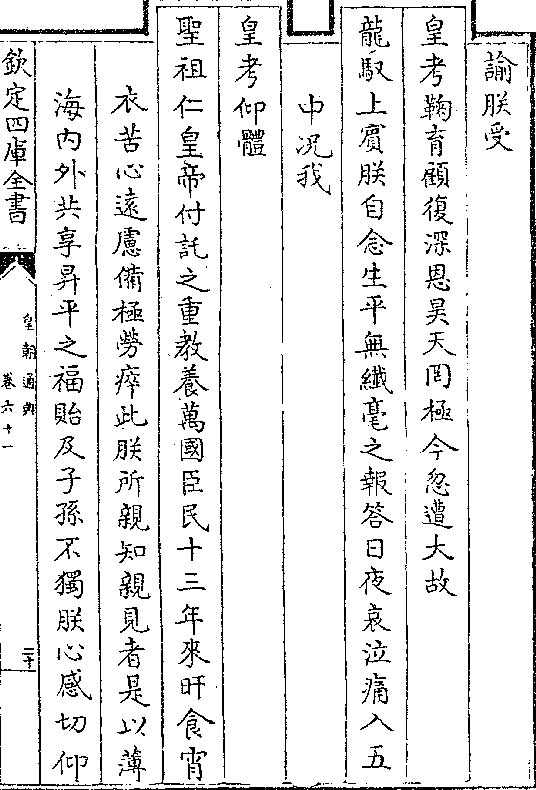 諭朕受
皇考鞠育顧復深恩昊天罔極今忽遭大故
龍馭上賓朕自念生平無纖毫之報答日夜哀泣痛入五
中况我
皇考仰體
聖祖仁皇帝付託之重教養萬國臣民十三年來旰食宵
衣苦心遠慮備極勞瘁此朕所親知親見者是以薄
海内外共享昇平之福貽及子孫不獨朕心感切仰
欽定四庫全書
皇朝通典
卷六十一
二十